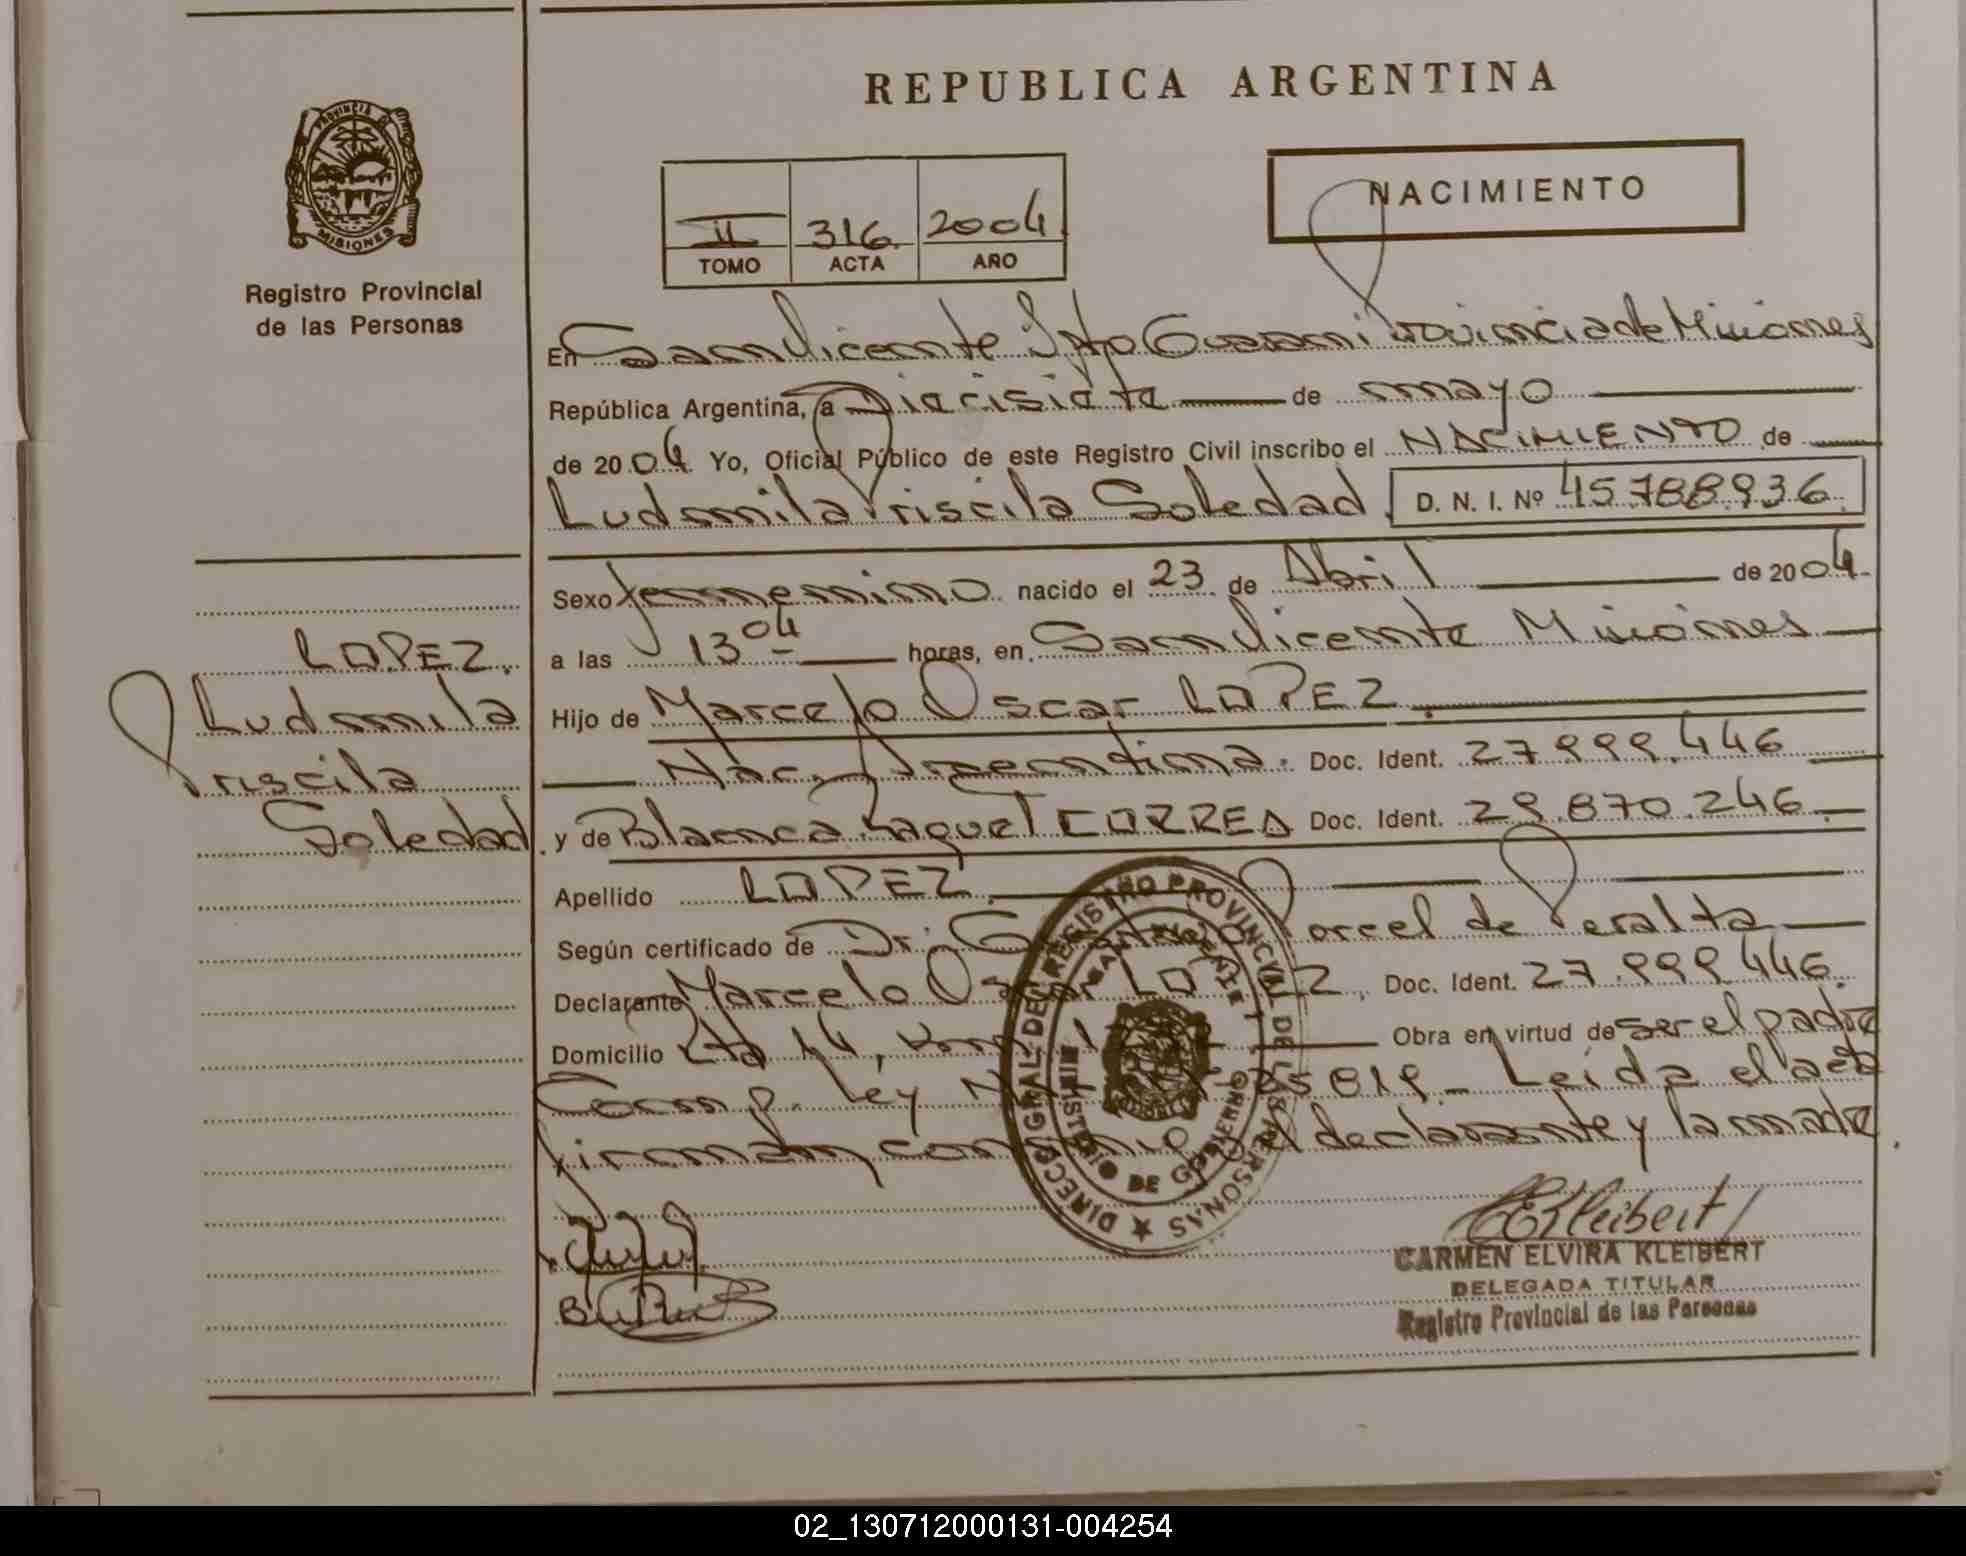 REPUBLICA ARGENTINA
PROVINCIA DE
MISIONES
Registro Provincial
de las Personas
NACIMIENTO
II 316 2004
TOMO ACTA AÑO
En San Vicente Dpto Guarani Provincia de Misiones
República Argentina, a Diecisiete de mayo
de 2004 Yo, Oficial Público de este Registro Civil inscribo el NACIMIENTO de
Ludmila Priscila Soledad D. N. I. Nº 45788936
Sexo femenino nacido el 23 de Abril de 2004
a las 13 04 horas, en San Vicente Misiones
Hijo de Marcelo Oscar LOPEZ
Nac. Argentina. Doc. Ident. 27.999.446
y de Blanca Raquel CORREA Doc. Ident. 29.870.246
Apellido LOPEZ
Según certificado de Dr. Porcel de Peralta
Declarante Marcelo Oscar LOPEZ, Doc. Ident. 27.999.446
Domicilio Rta 14, Km Obra en virtud de ser el padre
Comp. Ley Nº 25819 - Leida el acta
firman conmigo el declarante y la madre.
LOPEZ.
Ludmila
Priscila
Soledad
DIRECC. GRAL. DEL REGISTRO PROVINCIAL DE LAS PERSONAS
MINISTERIO DE GOBIERNO
SAN VICENTE
CEKleibert
CARMEN ELVIRA KLEIBERT
DELEGADA TITULAR
Registro Provincial de las Personas
02_130712000131-004254